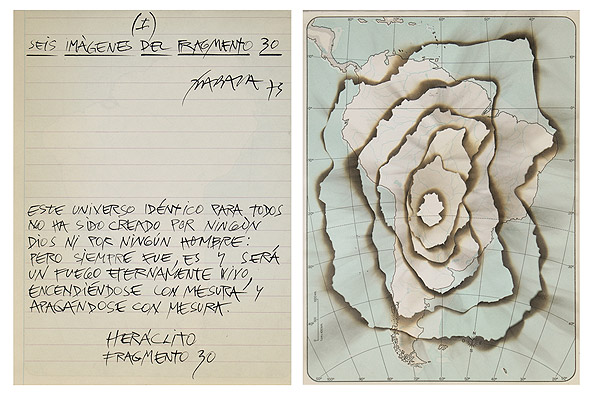 (I)
SEIS IMÀGENES DEL FRAGMENTO 30
ZABALA 73
ESTE UNIVERSO IDÉNTICO PARA TODOS
NO HA SIDO CREADO POR NINGÙN
DIOS NI POR NINGÙN HOMBRE:
PERO SIEMPRE FUE, ES Y SERÁ
UN FUEGO ETERNAMENTE VIVO,
ENCENDIÉNDOSE CON MESURA Y
APAGÁNDOSE CON MESURA.
HERÁCLITO
FRAGMENTO 30